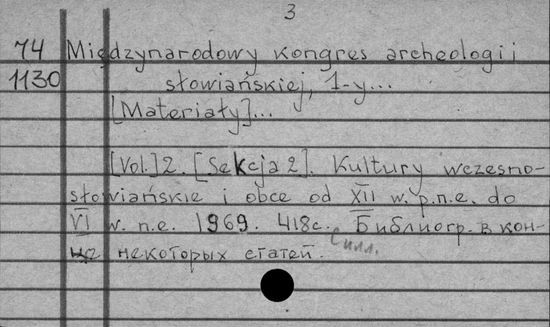 3
74 Międzynarodowy kongres archeologii
1130 słowiańskiej, 1-y...
[Materiały]...
[Vol.] 2. [Sekcja 2]. Kultury wczesno-
słowiańskie i obce od XII w. p.n.e. do
VI w. n.e. 1969. 418с. Библиогр. в кон-
с илл.
це некоторых статей.